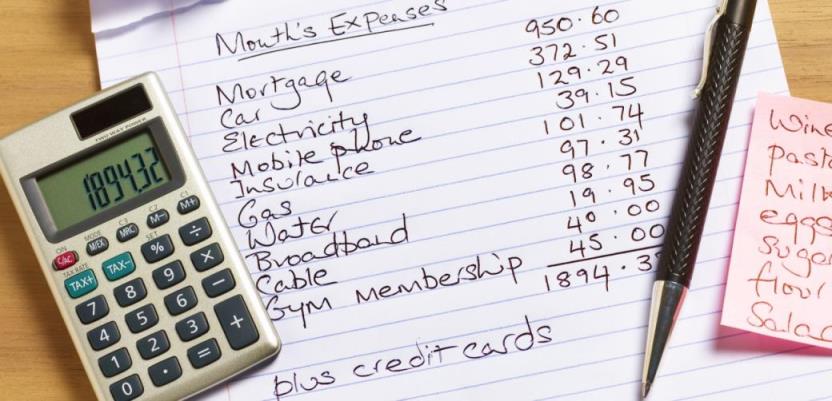 Month's Expenses
Mortgage 950.60
Car 372.51
Electricity 129.29
Mobile phone 39.15
Insurance 101.74
Gas 97.31
Water 98.77
Broadband 19.95
Cable 40.00
Gym Membership 45.00
1894.3
plus credit cards
TWO WAY POWER
1894.32
ON MODE C3 C2 C1
C/AC M/EX MRC M- M+
TAX RATE
TAX+ TAX- % ÷
7 8 9 × −
4 5 6 +
1 2 3
0 · =
Wine
Past
Milk
eggs
Suga
flour
Salad